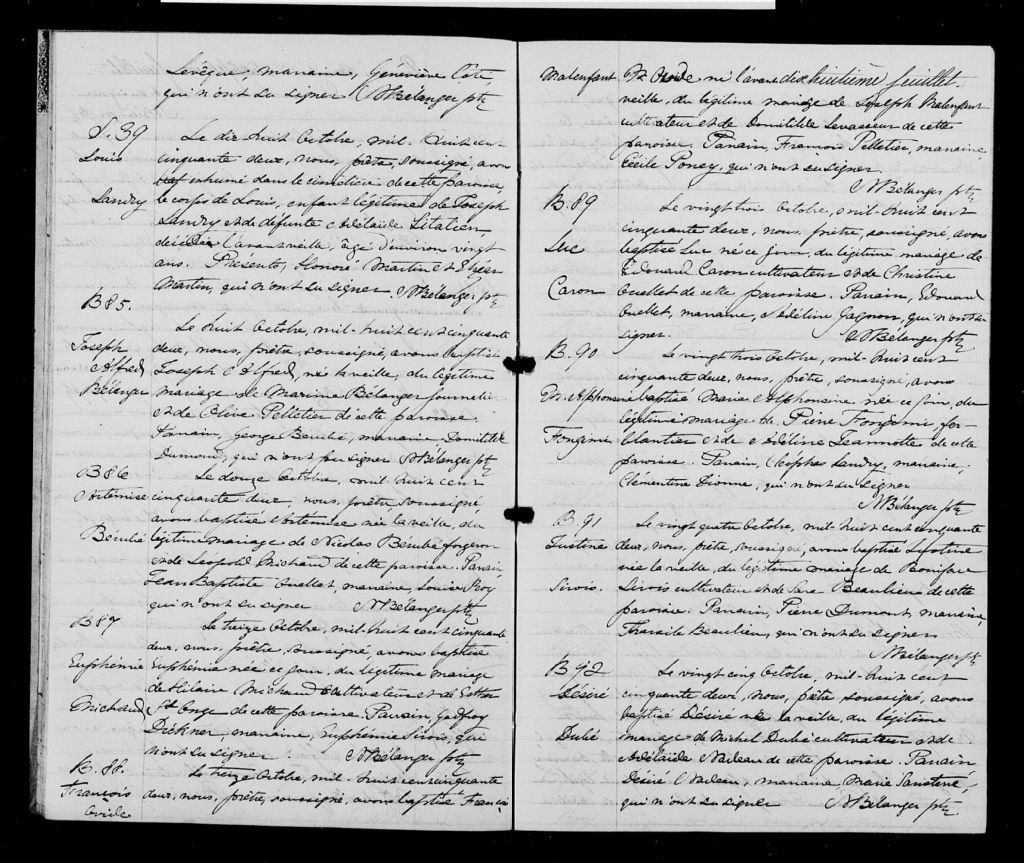 Levêque, marraine, Géneviève Côté
qui n'ont su signer N Bélanger ptr
S. 39
Louis
Landry
Le dix huit Octobre, mil-huit cent
cinquante deux, nous, prêtre, soussigné, avons
inhumé dans le cimetière de cette paroisse,
le corps de Louis, enfant légitime de Joseph
Landry et de défunte Adélaïde Litalien,
décédée l'avant veille, âgé d'environ vingt
ans. Présents, Honoré Martin et
Martin, qui n'ont su signer. N Bélanger ptr
B 85.
Joseph
Alfred
Bélanger
Le huit Octobre, mil-huit cent cinquante
deux, nous, prêtre, soussigné, avons baptisé
Joseph Alfred, né la veille, du légitime
mariage de Maxime Bélanger journalier
et de Olive Pelletier de cette paroisse.
Parrain, George Berubé, marraine Domitilde
Dumond, qui n'ont pu signer N Bélanger ptr
B 86
Artémise
Berubé
Le douze Octobre, mil huit cent
cinquante deux, nous, prêtre, soussigné,
avons baptisé Artémise née la veille, du
légitime mariage de Nicolas Bérubé forgeron
et de Léopold Michaud de cette paroisse. Parrain,
Jean Baptiste Ouellet, marraine, Louise Roy
qui n'ont su signer N Bélanger ptr
B 87
Euphémie
Michaud
Le treize Octobre, mil-huit cent cinquante
deux, nous, prêtre, soussigné, avons baptisé
Euphémie née ce jour, du légitime mariage
de Hilaire Michaud Cultivateur et de Esther
St Onge de cette paroisse. Parrain, Godfroy
Dickner, marraine, Euphémie Sirois, qui
n'ont su signer. N Bélanger ptr
B. 88.
François
Ovide
Le treize Octobre, mil-huit cent cinquante
deux, nous, prêtre, soussigné, avons baptisé François
Malenfant
Ovide né l'avant dix huitième Juillet.
veille, du légitime mariage de Joseph Malenfant
cultivateur et de Domitilde Levasseur de cette
paroisse. Parrain, François Pelletier, marraine
Cécile Poney, qui n'ont su signer.
N Bélanger ptr
B. 89
Luc
Caron
Le vingt trois Octobre, mil-huit cent
cinquante deux, nous, prêtre, soussigné, avons
baptisé Luc né ce jour, du légitime mariage de
Edouard Caron cultivateur et de Christine
Ouellet de cette paroisse. Parrain, Edouard
Ouellet, marraine, Adéline Gagnon, qui n'ont su
signer. N Bélanger ptr
B. 90
M. Alphonsine
Fongemi
Le vingt trois Octobre, mil-huit cent
cinquante deux, nous, prêtre, soussigné, avons
baptisé Marie Alphonsine née ce jour, du
légitime mariage de Pierre Fongemi, fer-
blantier et de Adéline Jeannotte de cette
paroisse. Parrain, Cléophas Landry, marraine,
Clémentine Dionne, qui n'ont su signer
N Bélanger ptr
B. 91
Justine
Sirois.
Le vingt quatre Octobre, mil-huit cent cinquante
deux, nous, prêtre, soussigné, avons baptisé Justine
née la veille, du légitime mariage de Boniface
Sirois cultivateur et de Sara Beaulieu de cette
paroisse. Parrain, Pierre Dumont, marraine,
Tharsile Beaulieu, qui n'ont su signer
N Bélanger ptr
B 92
Désiré
Dubé
Le vingt cinq Octobre, mil-huit cent
cinquante deux, nous, prêtre soussigné, avons
baptisé Désiré né la veille, du légitime
mariage de Michel Dubé cultivateur et de
Adélaïde Nadeau de cette paroisse. Parrain
Désiré Nadeau, marraine, Marie
qui n'ont su signer N Bélanger ptr